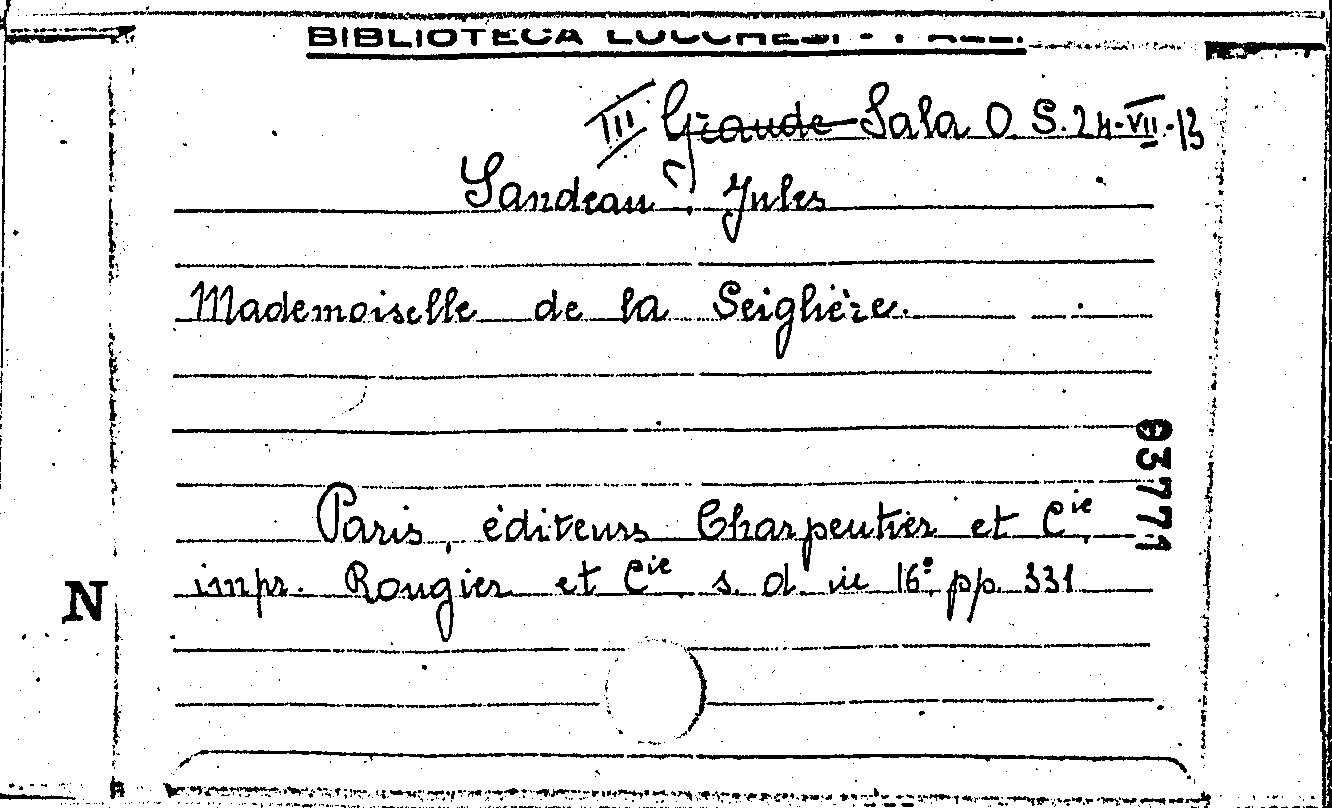 BIBLIOTECA LUCCHESI - PALLI
III Grande Sala O. S. 24-VII-13
Sandeau, Jules
Mademoiselle de la Seiglière.
Paris, éditeurs Charpentier et Cie.
impr. Rougier et Cie s. d. in 16° pp. 331
03771
N